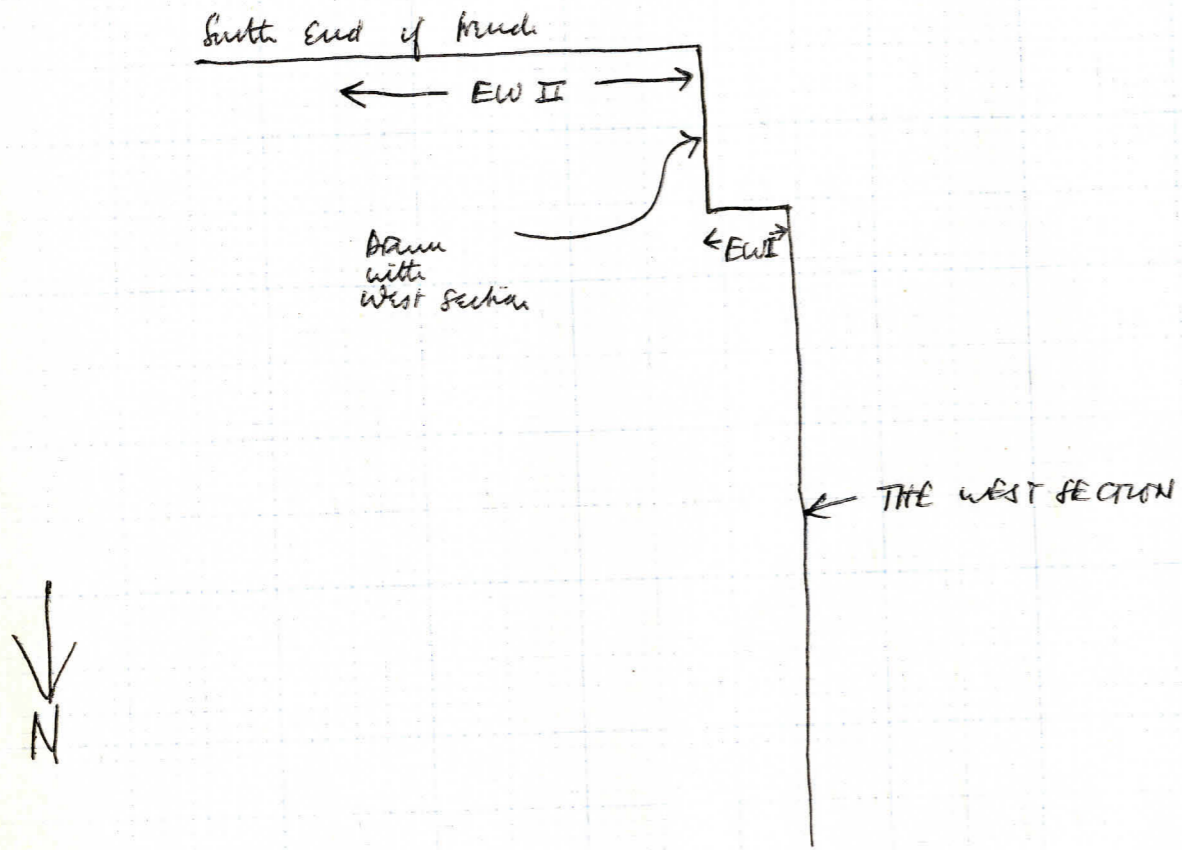 South End of Trench
EW II
EWI
Drawn
with
West Section
THE WEST SECTION
N